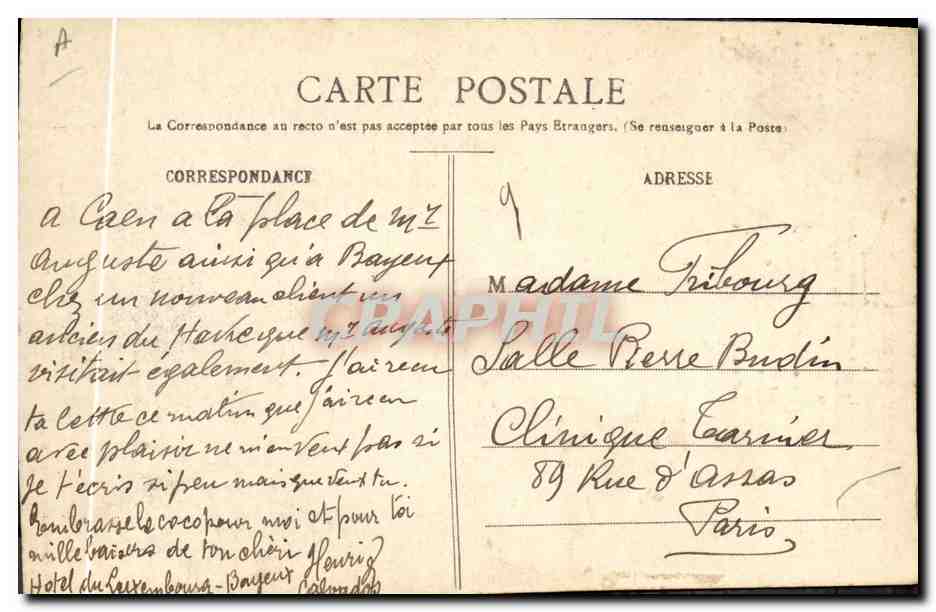 A
CARTE POSTALE
La Correspondance au recto n'est pas acceptée par tous les Pays Etrangers. (Se renseigner à la Poste)
CORRESPONDANCE
a Caen a la place de Mr
Auguste ainsi qu'a Bayeux
chez un nouveau client un
ancien du Havre que Mr Auguste
visitait également. J'ai recu
ta lettre ce matin que j'ai recu
avec plaisir ne m'en veux pas si
je t'écris si peu mais que veux tu.
Embrasse le coco pour moi et pour toi
mille baisers de ton chéri Henri
Hotel du Luxembourg - Bayeux Calvados
ADRESSE
9
Madame Fribourg
Salle Pierre Budin
Clinique Tarnier
89 Rue d'Assas
Paris
CPAPHIL